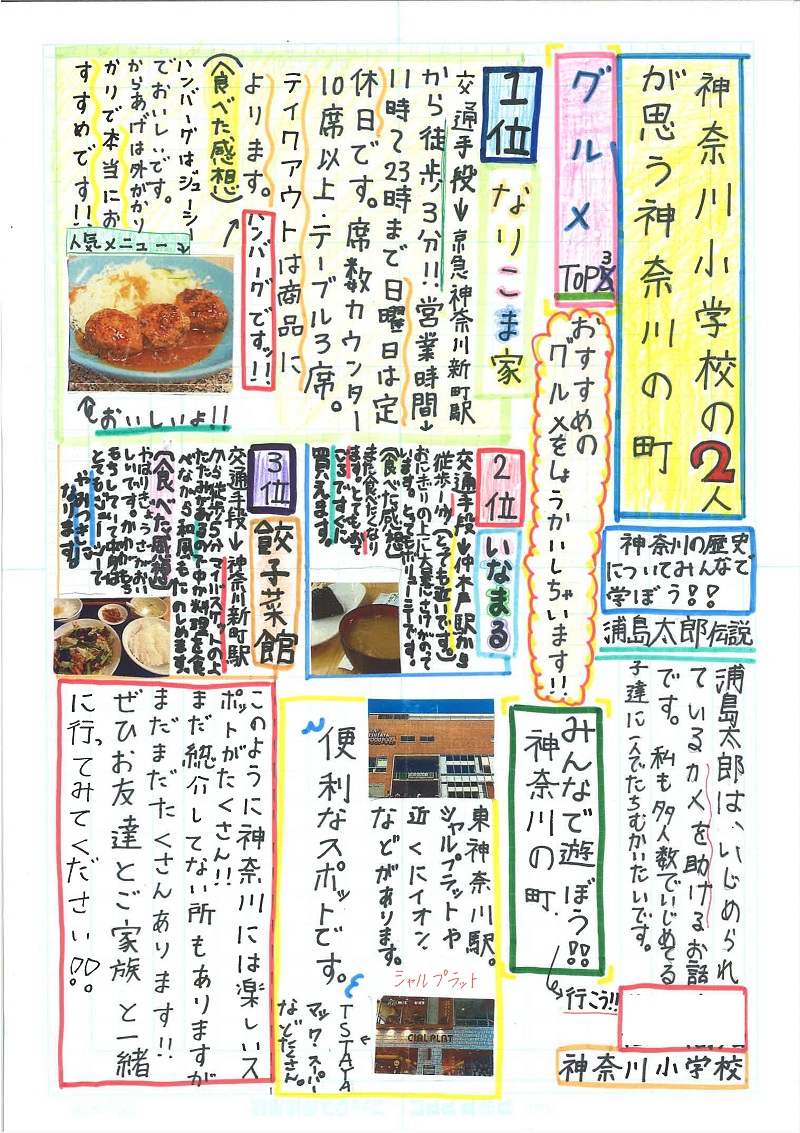 神奈川小学校の2人
が思う神奈川の町
グルメ
TOP3
おすすめの
グルメをしょうかいしちゃいます!!
1位
なりこま家
交通手段→京急神奈川新町駅
から徒歩3分!!営業時間→
11時〜23時まで日曜日は定
休日です。席数カウンター
10席以上・テーブル3席。
テイクアウトは商品に
よります。
ハンバーグですッ!!
(食べた感想)
ハンバーグはジューシー
でおいしいです。
からあげは外がかり
かりで本当にお
すすめです!!
人気メニュー
おいしいよ!!
2位
いなまる
交通手段→仲木戸駅から
徒歩一分!(とっても近いです。)
おにぎりの上に大葉とさけがのって
います。とってもボリューミーです。
(食べた感想)
また食べたくなり
ます。とってもおて
ごろですぐに
買えます。
3位
餃子菜館
交通手段→神奈川新町駅
から徒歩5分
たたみもあるので中か料理を食
べながら和風もたのしめます。
(食べた感想)
やはりぎょうざがおい
しいです。かわがもち
もちしてて中身は
とてもジューシーで
やみつきに
なります。
神奈川の歴史
についてみんなで
学ぼう!!
浦島太郎伝説
浦島太郎は、いじめられ
ているカメを助けるお話
です。私も多人数でいじめてる
子達に一人でたちむかいたいです。
みんなで遊ぼう!!
神奈川の町.
行こう!!
東神奈川駅。
シャルプラットや
近くにイオン
などがあります。
便利なスポットです。
シャルプラット
TSTAYA
マック・スーパー
などたくさん。
CIAL PLAT
このように神奈川には楽しいス
ポットがたくさん!!
まだ総介してない所もありますが
まだまだたくさんあります!!
ぜひお友達とご家族と一緒
に行ってみてください!!
神奈川小学校